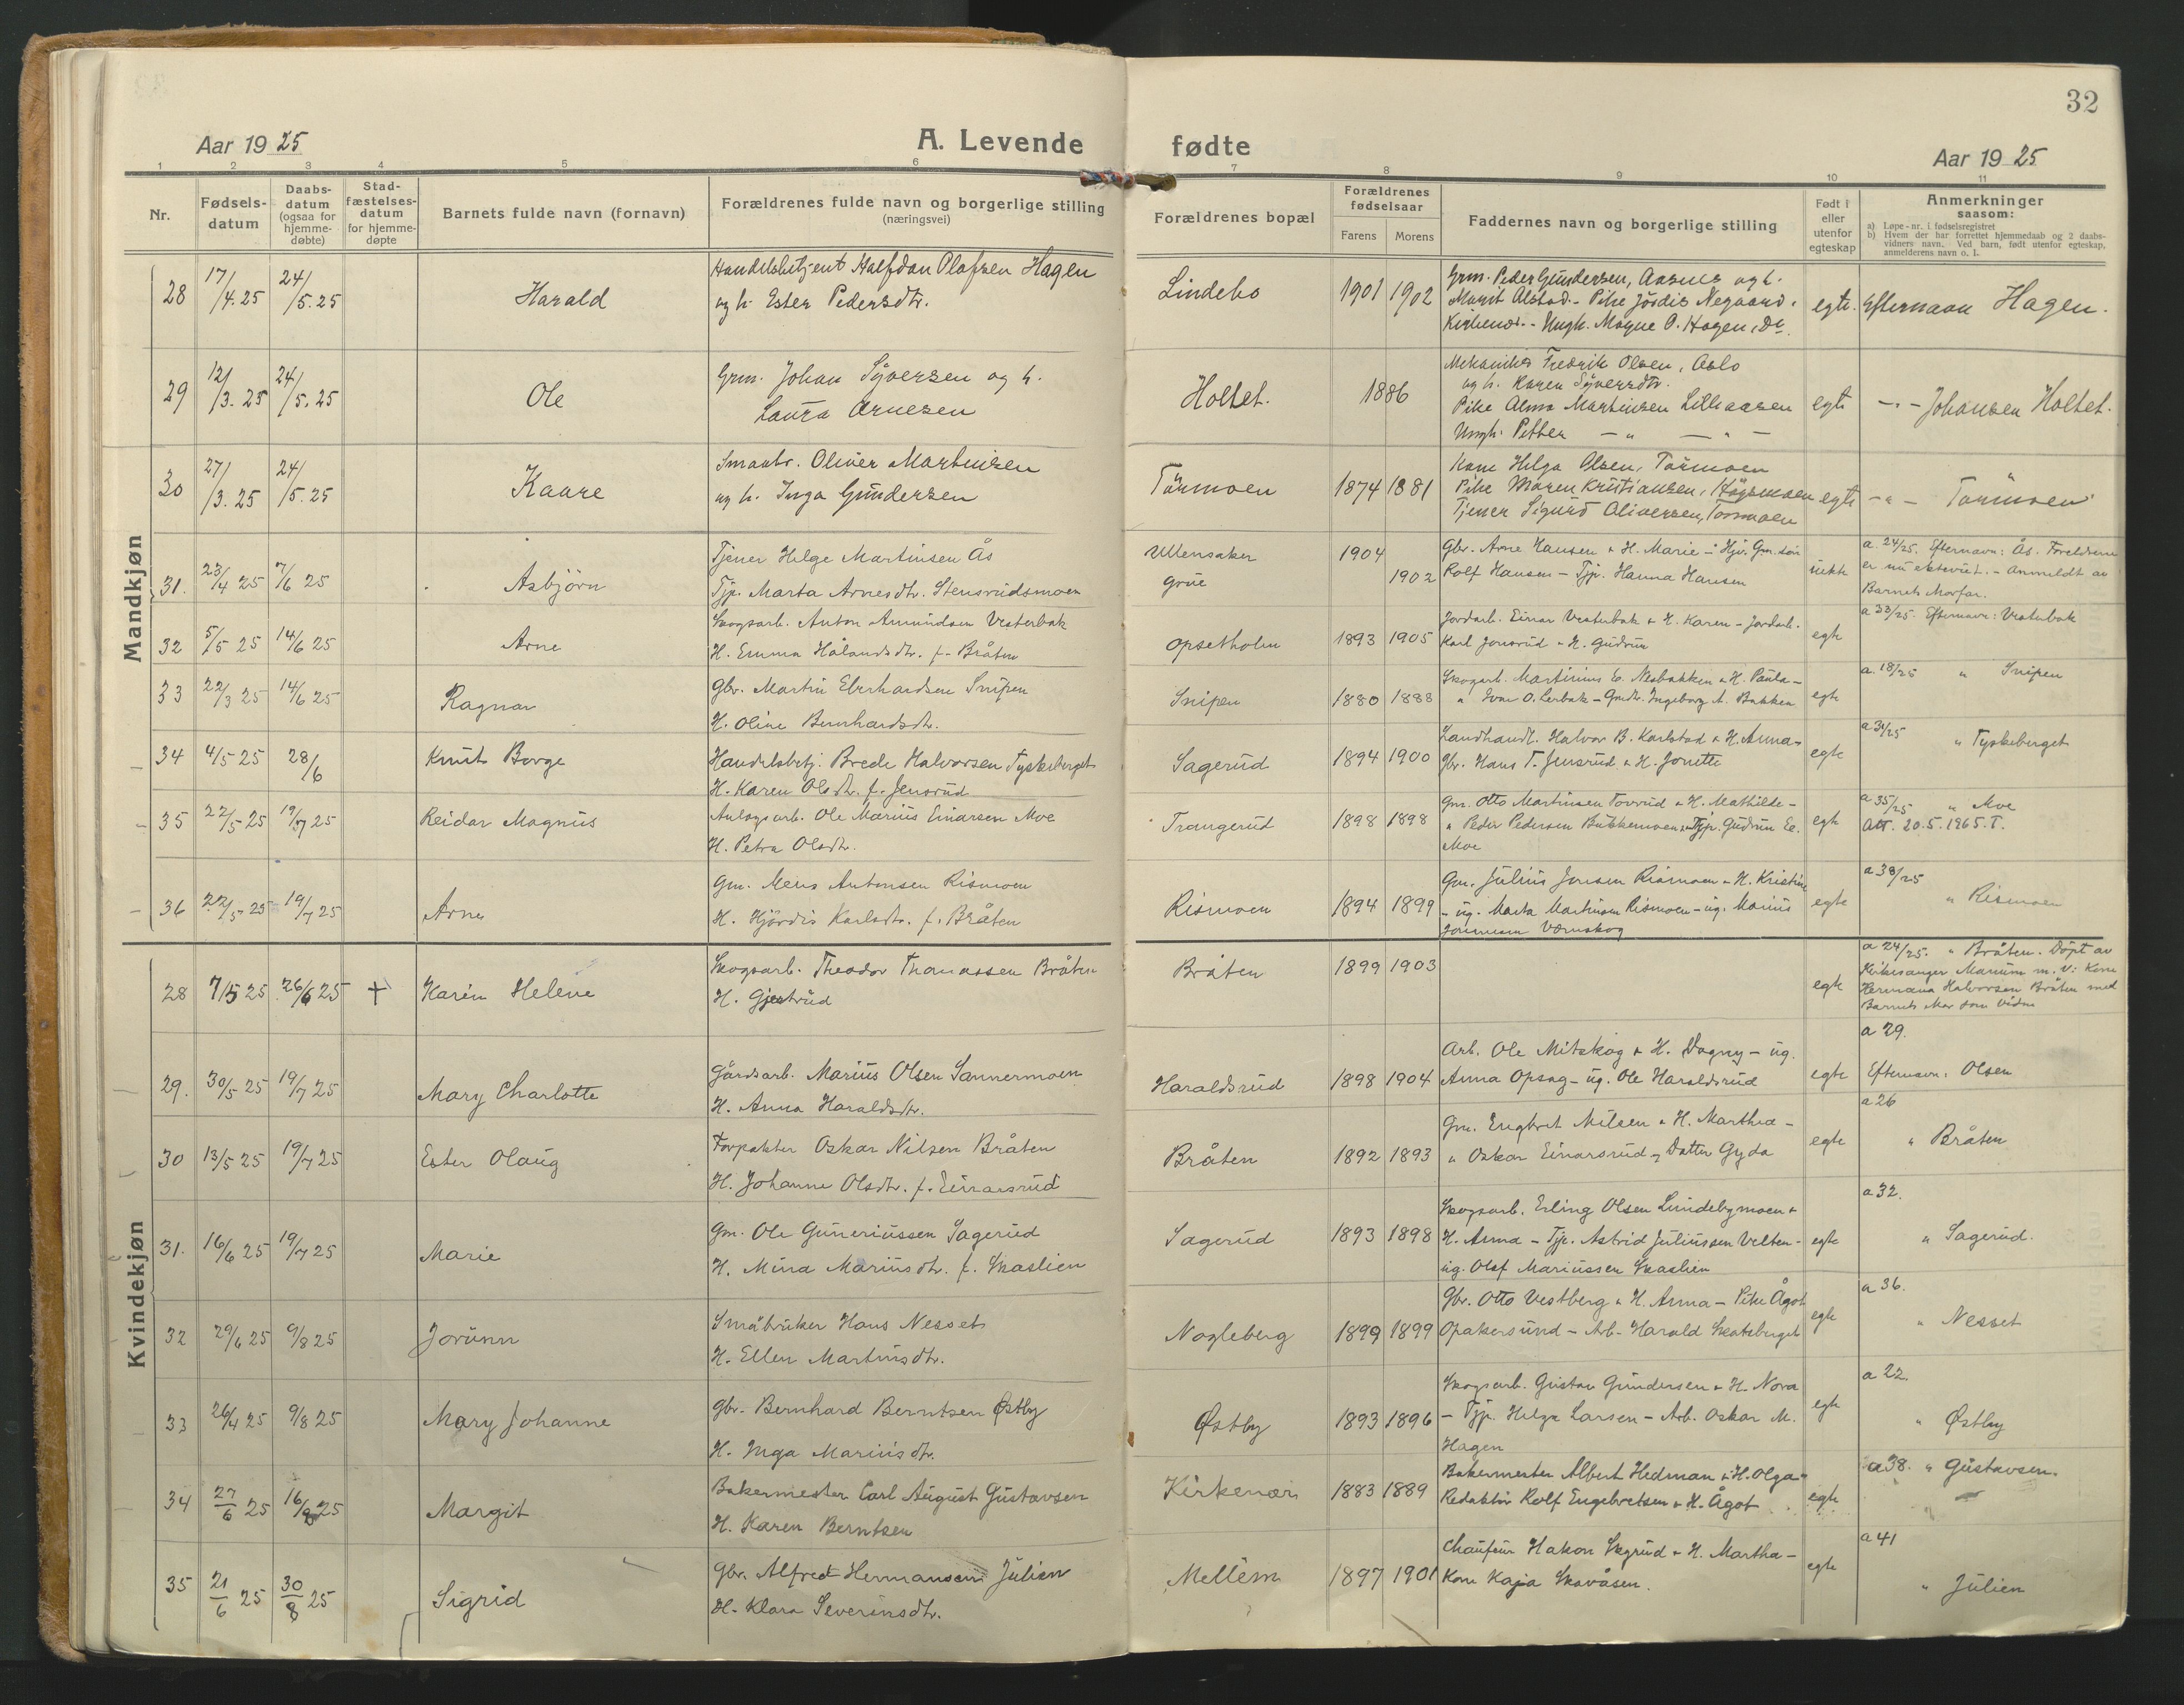 32
Aar 1925
A. Levende fødte
Aar 1925
1 2 3 4 5 6 7 8 9 10 11
Nr.
Fødsels-
datum
Daabs-
datum
(ogsaa for
hjemme-
døbte)
Stad-
fæstelses-
datum
for hjemme-
døpte
Barnets fulde navn (fornavn)
Forældrenes fulde navn og borgerlige stilling
(næringsvei)
Forældrenes bopæl
Forældrenes
fødselsaar
Farens Morens
Faddernes navn og borgerlige stilling
Født i
eller
utenfor
egteskap
Anmerkninger
saasom:
a) Løpe-nr. i fødselsregistret
b) Hvem der har forrettet hjemmedaab og 2 daabs-
vidners navn. Ved barn, født utenfor egteskap,
anmelderens navn o. l.
Mandkjøn
28 17/4.25 24/5.25 Harald
Handelsbetjent Halfdan Olafsen Hagen
og h. Ester Pedersdtr.
Lindebo 1901 1902
Grm. Peder Gundersen, Aasnes og h.
Marit Alstad - Pike Jördis Negaard,
Kirkenær - Ungk. Magne O. Hagen, Do.
egte. Efternavn Hagen.
29 12/3.25 24/5.25 Ole
Grm. Johan Syversen og h.
Laura Arnesen
Holtet. 1886
Mekaniker Fredrik Olsen, Oslo
og h. Karen Syversdtr.
Pike Alma Martinsen Lilleaasen
Ungk. Petter - " - " -
egte - " - Johansen Holtet.
30 27/3.25 24/5.25 Kaare
Smaabr. Oliver Martinsen
og h. Inga Gundersen
Törmoen 1874 1881
Kone Helga Olsen, Törmoen
Pike Maren Kristiansen, Högsmoen
Tjener Sigurd Oliversen, Tormoen
egte - " - Törmoen
31. 23/4 25 7/6 25 Asbjörn
Tjener Helge Martinsen Ås
Tjp. Marta Arnesdtr. Stensrudsmoen
Ullensaker 1904
Grue 1902
Gbr. Arne Hansen & H. Marie - Hjv. Gm. sön
Rolf Hansen - Tjp. Hanna Hansen
uekte
a. 24/25. Efternavn: Ås. Foreldrene
er nu ekteviet. - Anmeldt av
Barnets Morfar.
32 5/5 25 14/6 25 Arne
Skogsarb. Anton Amundsen Vesterbak
H. Emma Hålandsdtr. f. Bråten
Opsetholm 1893 1905
Jordarb. Einar Vesterbak & H. Karen - Jordarb.
Karl Jensrud & H. Gudrun
egte
a 33/25. Efternavn: Vesterbak
33 22/3 25 14/6 25 Ragnar
Gbr. Martin Eberhardsen Snipen
H. Oline Bernhardsdtr.
Snipen 1880 1888
Skogsarb. Martinius E. Nesbakken & H. Paula -
" Ivar O. Lerbak - Gmdtr. Ingeborg A. Bakken
egte
a. 18/25 " Snipen
34 4/5 25 28/6 Knut Borge
Handelsbetj. Brede Halvorsen Tyskeberget
H. Karen Olsdtr. f. Jensrud
Sagerud 1894 1900
Landhandl. Halvor B. Karlstad & H. Anna -
Gbr. Hans T. Jensrud & H. Jonette
egte
a 31/25 " Tyskeberget
35 22/5 25 19/7 25 Reidar Magnus
Anlegsarb. Ole Marius Einarsen Moe
H. Petra Olsdtr.
Trangerud 1898 1898
Gm. Otto Martinsen Tovrud & H. Mathilde -
" Peder Pedersen Bukkemoen - Tjp. Gudrun Ee.
Moe
egte
a 35/25 " Moe
Att. 20.5.1965. T.
36 22/5 25 19/7 25 Arne
Gm. Mens Antonsen Rismoen
H. Hjördis Karlsdtr. f. Bråten
Rismoen 1894 1899
Gm. Julius Jensen Rismoen & H. Kristine
- ug. Marta Martinsen Rismoen - ug. Marius
Vermskog
egte
a 38/25 " Rismoen
Kvindekjøn
28 7/5 25 26/6 25 + Karin Helene
Skogsarb. Theodor Thomassen Bråten
H. Gjertrud
Bråten 1899 1903
egte
a 24/25. " Bråten. Döpt av
Kirkesanger m. v: Kone
Hermana Halvorsen Bråten med
Barnets Mor som Vidne
29. 30/5 25 19/7 25 Mary Charlotte
Gårdsarb. Marius Olsen Sannermoen
H. Anna Haraldsdtr.
Haraldsrud 1898 1904
Arb. Ole Mitskog & H. Dagny - ug.
Anna Opsag - ug. Ole Haraldsrud
egte
a 29.
Efternavn: Olsen
30 13/5 25 19/7 25 Ester Olaug
Forpakter Oskar Nilsen Bråten
H. Johanne Olsdtr. f. Einarsrud
Bråten 1892 1893
Gm. Engbret Nilsen & H. Marthea -
" Oskar Einarsrud & Datter Gyda
egte
a 26
" Bråten
31. 16/6 25 19/7 25 Marie
Gm. Ole Guneriussen Sagerud
H. Mina Mariusdtr. f. Skaslien
Sagerud 1893 1898
Skogsarb. Erling Olsen Lundebymoen &
H. Anna - Tjp. Astrid Juliussen Velten -
ug. Olaf Mariussen Skaslien
egte
a 32.
" Sagerud.
32 29/6 25 9/8 25 Jorunn
Småbruker Hans Nesset
H. Ellen Martinsdtr.
Nogleberg 1899 1899
Gbr. Otto Vestberg & H. Anna - Pike Ågot
Opakersund - Arb. Harald Skateberget
egte
a 36.
" Nesset
33 26/4 25 9/8 25 Mary Johanne
Gbr. Bernhard Berntsen Østby
H. Inga Mariusdtr.
Østby 1893 1896
Skogsarb. Gustav Gundersen & H. Nora
- Tjp. Helga Larsen - Arb. Oskar M.
Hagen
egte
a 22.
" Østby
34 27/6 25 16/8 25 Margit
Bakermester Carl August Gustavsen
H. Karen Berntsen
Kirkenær 1883 1889
Bakermester Albert Hedman & H. Olga -
Redaktör Rolf Engebretsen & H. Ågot
egte
a 38. " Gustavsen.
35 21/6 25 30/8 25 Sigrid
Gbr. Alfred Hermansen Julien
H. Klara Severinsdtr.
Mellem 1897 1901
Chauför Hakon Skyrud & H. Martha -
Kone Kaja Skovåsen.
egte
a 41
" Julien